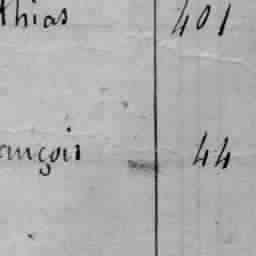 thias 401
ançois 44